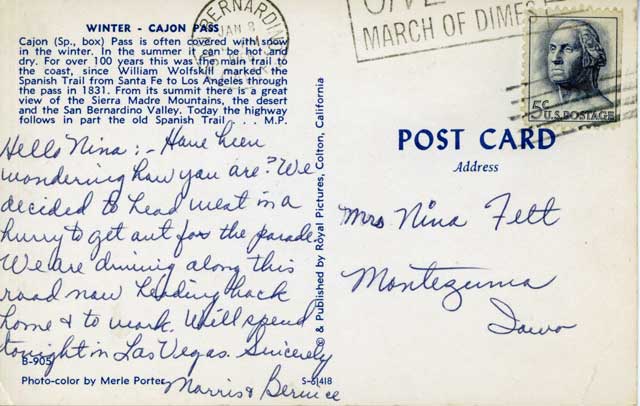 WINTER - CAJON PASS
Cajon (Sp., box) Pass is often covered with snow
in the winter. In the summer it can be hot and
dry. For over 100 years this was the main trail to
the coast, since William Wolfskill marked the
Spanish Trail from Santa Fe to Los Angeles through
the pass in 1831. From its summit there is a great
view of the Sierra Madre Mountains, the desert
and the San Bernardino Valley. Today the highway
follows in part the old Spanish Trail . . . M.P.
Hello Nina : - Have been
wondering how you are? We
decided to head west in a
hurry to get out for the parade
We are driving along this
road now heading back
home & to work. Will spend
tonight in Las Vegas. Sincerely
Morris & Bernice
B-905
Photo-color by Merle Porter
S-61418
© & Published by Royal Pictures, Colton, California
BERNARDIN
JAN 8
GIVE
MARCH OF DIMES
5¢ U.S. POSTAGE
POST CARD
Address
Mrs Nina Fett
Montezuma
Iowa